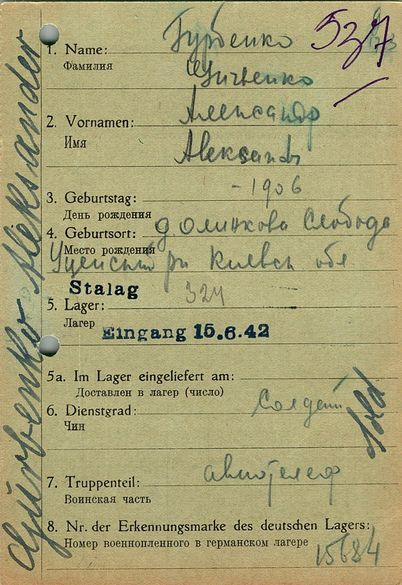 527
1. Name: Гурбенко
Фамилия
2. Vornamen: Александр
Имя
Aleksandr
3. Geburtstag: - 1906
День рождения
4. Geburtsort:
Место рождения
Киевск обл
Stalag
5. Lager: 324
Лагер
Eingang 15.6.42
5a. Im Lager eingeliefert am:
Доставлен в лагер (число)
6. Dienstgrad: Солдат
Чин
Sold
7. Truppenteil:
Воинская часть
8. Nr. der Erkennungsmarke des deutschen Lagers:
Номер военнопленного в германском лагере
15684
Gurbenko Aleksander